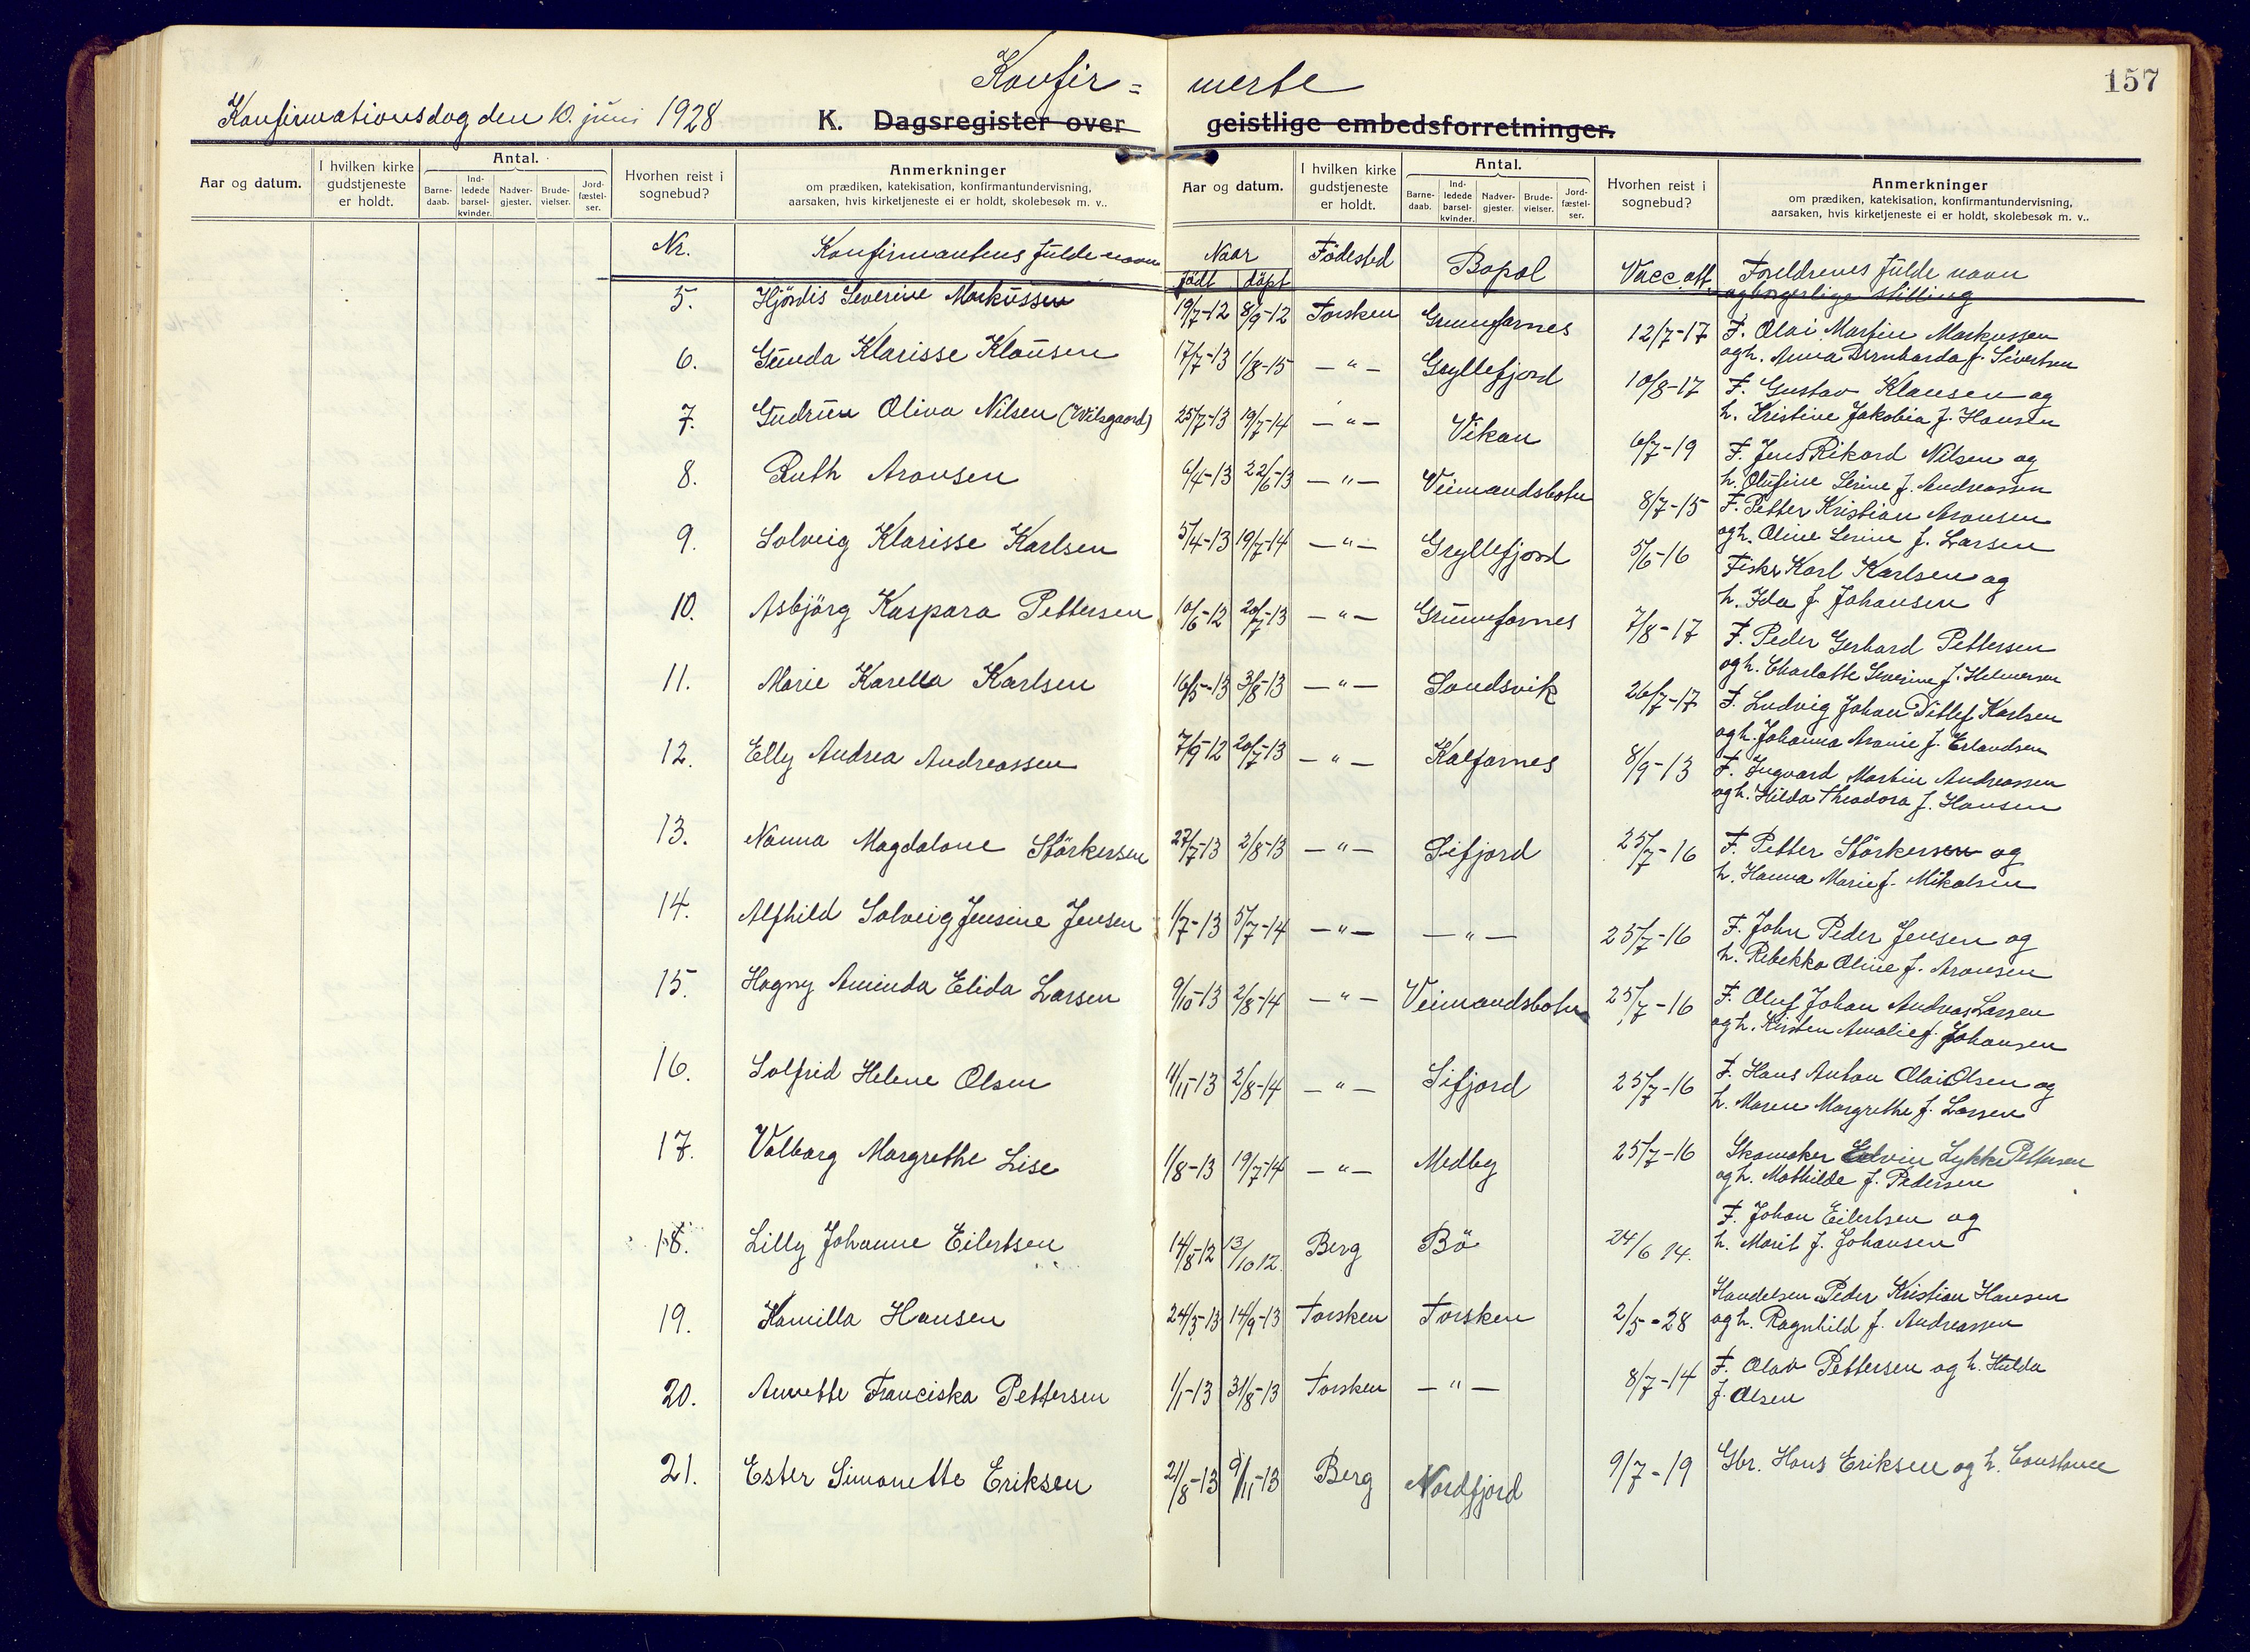 Konfir = merte
157
Konfirmationsdag den 10. juni 1928
K. Dagsregister over geistlige embedsforretninger.
Aar og datum. I hvilken kirke gudstjeneste er holdt. Antal. Barne-daab. Ind-ledede barsel-kvinder. Nadver-gjester. Brude-vielser. Jord-fæstel-ser. Hvorhen reist i sognebud? Anmerkninger om prædiken, katekisation, konfirmantundervisning, aarsaken, hvis kirketjeneste ei er holdt, skolebesøk m. v..
Aar og datum. I hvilken kirke gudstjeneste er holdt. Antal. Barne-daab. Ind-ledede barsel-kvinder. Nadver-gjester. Brude-vielser. Jord-fæstel-ser. Hvorhen reist i sognebud? Anmerkninger om prædiken, katekisation, konfirmantundervisning, aarsaken, hvis kirketjeneste ei er holdt, skolebesøk m. v..
Nr. Konfirmantens fulde navn Naar født døpt Fødested Bopæl Vacc. att. Foreldrenes fulde navn
og borgerlige stilling
5. Hjördis Severine Markussen 19/7-12 8/9-12 Torsken Grunnfarnes 12/7-17 F. Olai Martin Markussen
og h. Anna Bernharda f. Sivertsen
6. Gunda Klarisse Klausen 17/7-13 1/8-15 — " — Gryllefjord 10/8-17 F. Gustav Klausen og
h. Kristine Jakobia f. Hansen
7. Gudrun Oliva Nilsen (Wilsgaard) 25/7-13 19/7-14 — " — Vikan 6/7-19 F. Jens Rikard Nilsen og
h. Olufine Serine f. Andreassen
8. Ruth Aronsen 6/4-13 22/6-13 — " — Veimandsbotn 8/7-15 F. Petter Kristian Aronsen
og h. Oline Serine f. Larsen
9. Solveig Klarisse Karlsen 5/4-13 19/7-14 — " — Gryllefjord 5/6-16 Fisker Karl Karlsen og
h. Ida f. Johansen
10. Asbjörg Kaspara Pettersen 10/6-12 20/7-13 — " — Grunnfarnes 7/8-17 F. Peder Gerhard Pettersen
og h. Charlotte Severine f. Helmersen
11. Marie Karella Karlsen 16/5-13 3/8-13 — " — Sandsvik 26/7-17 F. Ludvig Johan Ditlef Karlsen
og h. Johanna Aronie f. Erlandsen
12. Elly Andrea Andreassen 7/9-12 20/7-13 — " — Kalfarnes 8/9-13 F. Ingvard Martin Andreassen
og h. Hilda Theodora f. Hansen
13. Nanna Magdalone Störkersen 27/7-13 2/8-13 — " — Sifjord 25/7-16 F. Petter Störkersen og
h. Hanna Marie f. Mikalsen
14. Alfhild Solveig Jensine Jensen 1/7-13 5/7-14 — " — — " — 25/7-16 F. John Peder Jensen og
h. Rebekka Oline f. Aronsen
15. Hagny Aminda Elida Larsen 9/10-13 2/8-14 — " — Veimandsbotn 25/7-16 F. Oluf Johan Andreas Larsen
og h. Kirsten Amalie f. Johansen
16. Solfrid Helene Olsen 11/11-13 2/8-14 — " — Sifjord 25/7-16 F. Hans Anton Olai Olsen og
h. Maren Margrethe f. Larsen
17. Valborg Margrethe Lise 1/8-13 19/7-14 — " — Medby 25/7-16 Skomaker Edvin Lykke Pettersen
og h. Mathilde f. Pedersen
18. Lilly Johanne Eilertsen 14/8-12 13/10 12. Berg Bö 24/6 14. F. Johan Eilertsen og
h. Marit f. Johansen
19. Kamilla Hansen 24/3-13 14/9-13 Torsken Torsken 2/5-28 Handelsm. Peder Kristian Hansen
og h. Ragnhild f. Andreassen
20. Annette Franciska Pettersen 1/1-13 31/8-13 Torsken — " — 8/7-14 F. Olav Pettersen og h. Hulda
f. Olsen
21. Ester Simonette Eriksen 21/8-13 9/11-13 Berg Nordfjord 9/7-19 Gbr. Hans Eriksen og h. Constance